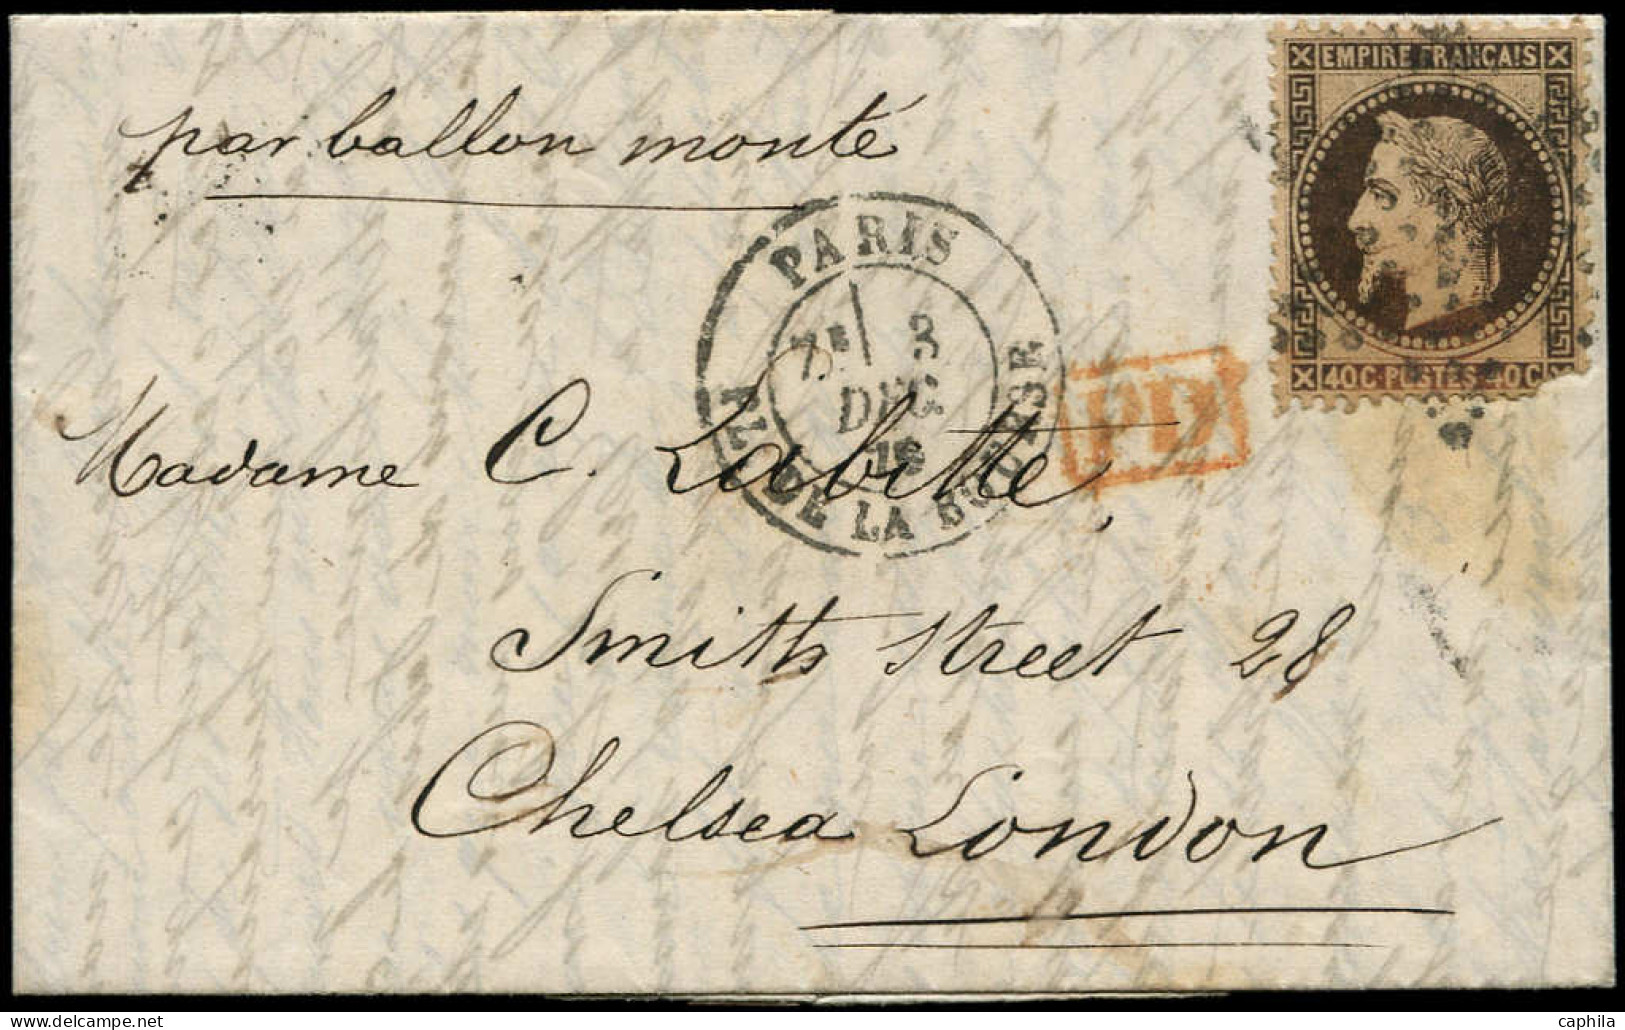 EMPIRE FRANÇAIS
40 C POSTES 40 C
par ballon monté
PARIS
7E 3
DEC.
PL. DE LA BOURSE
PD
Madame C. Labitte,
Smith Street 28
Chelsea London
delcampe.net
caphila